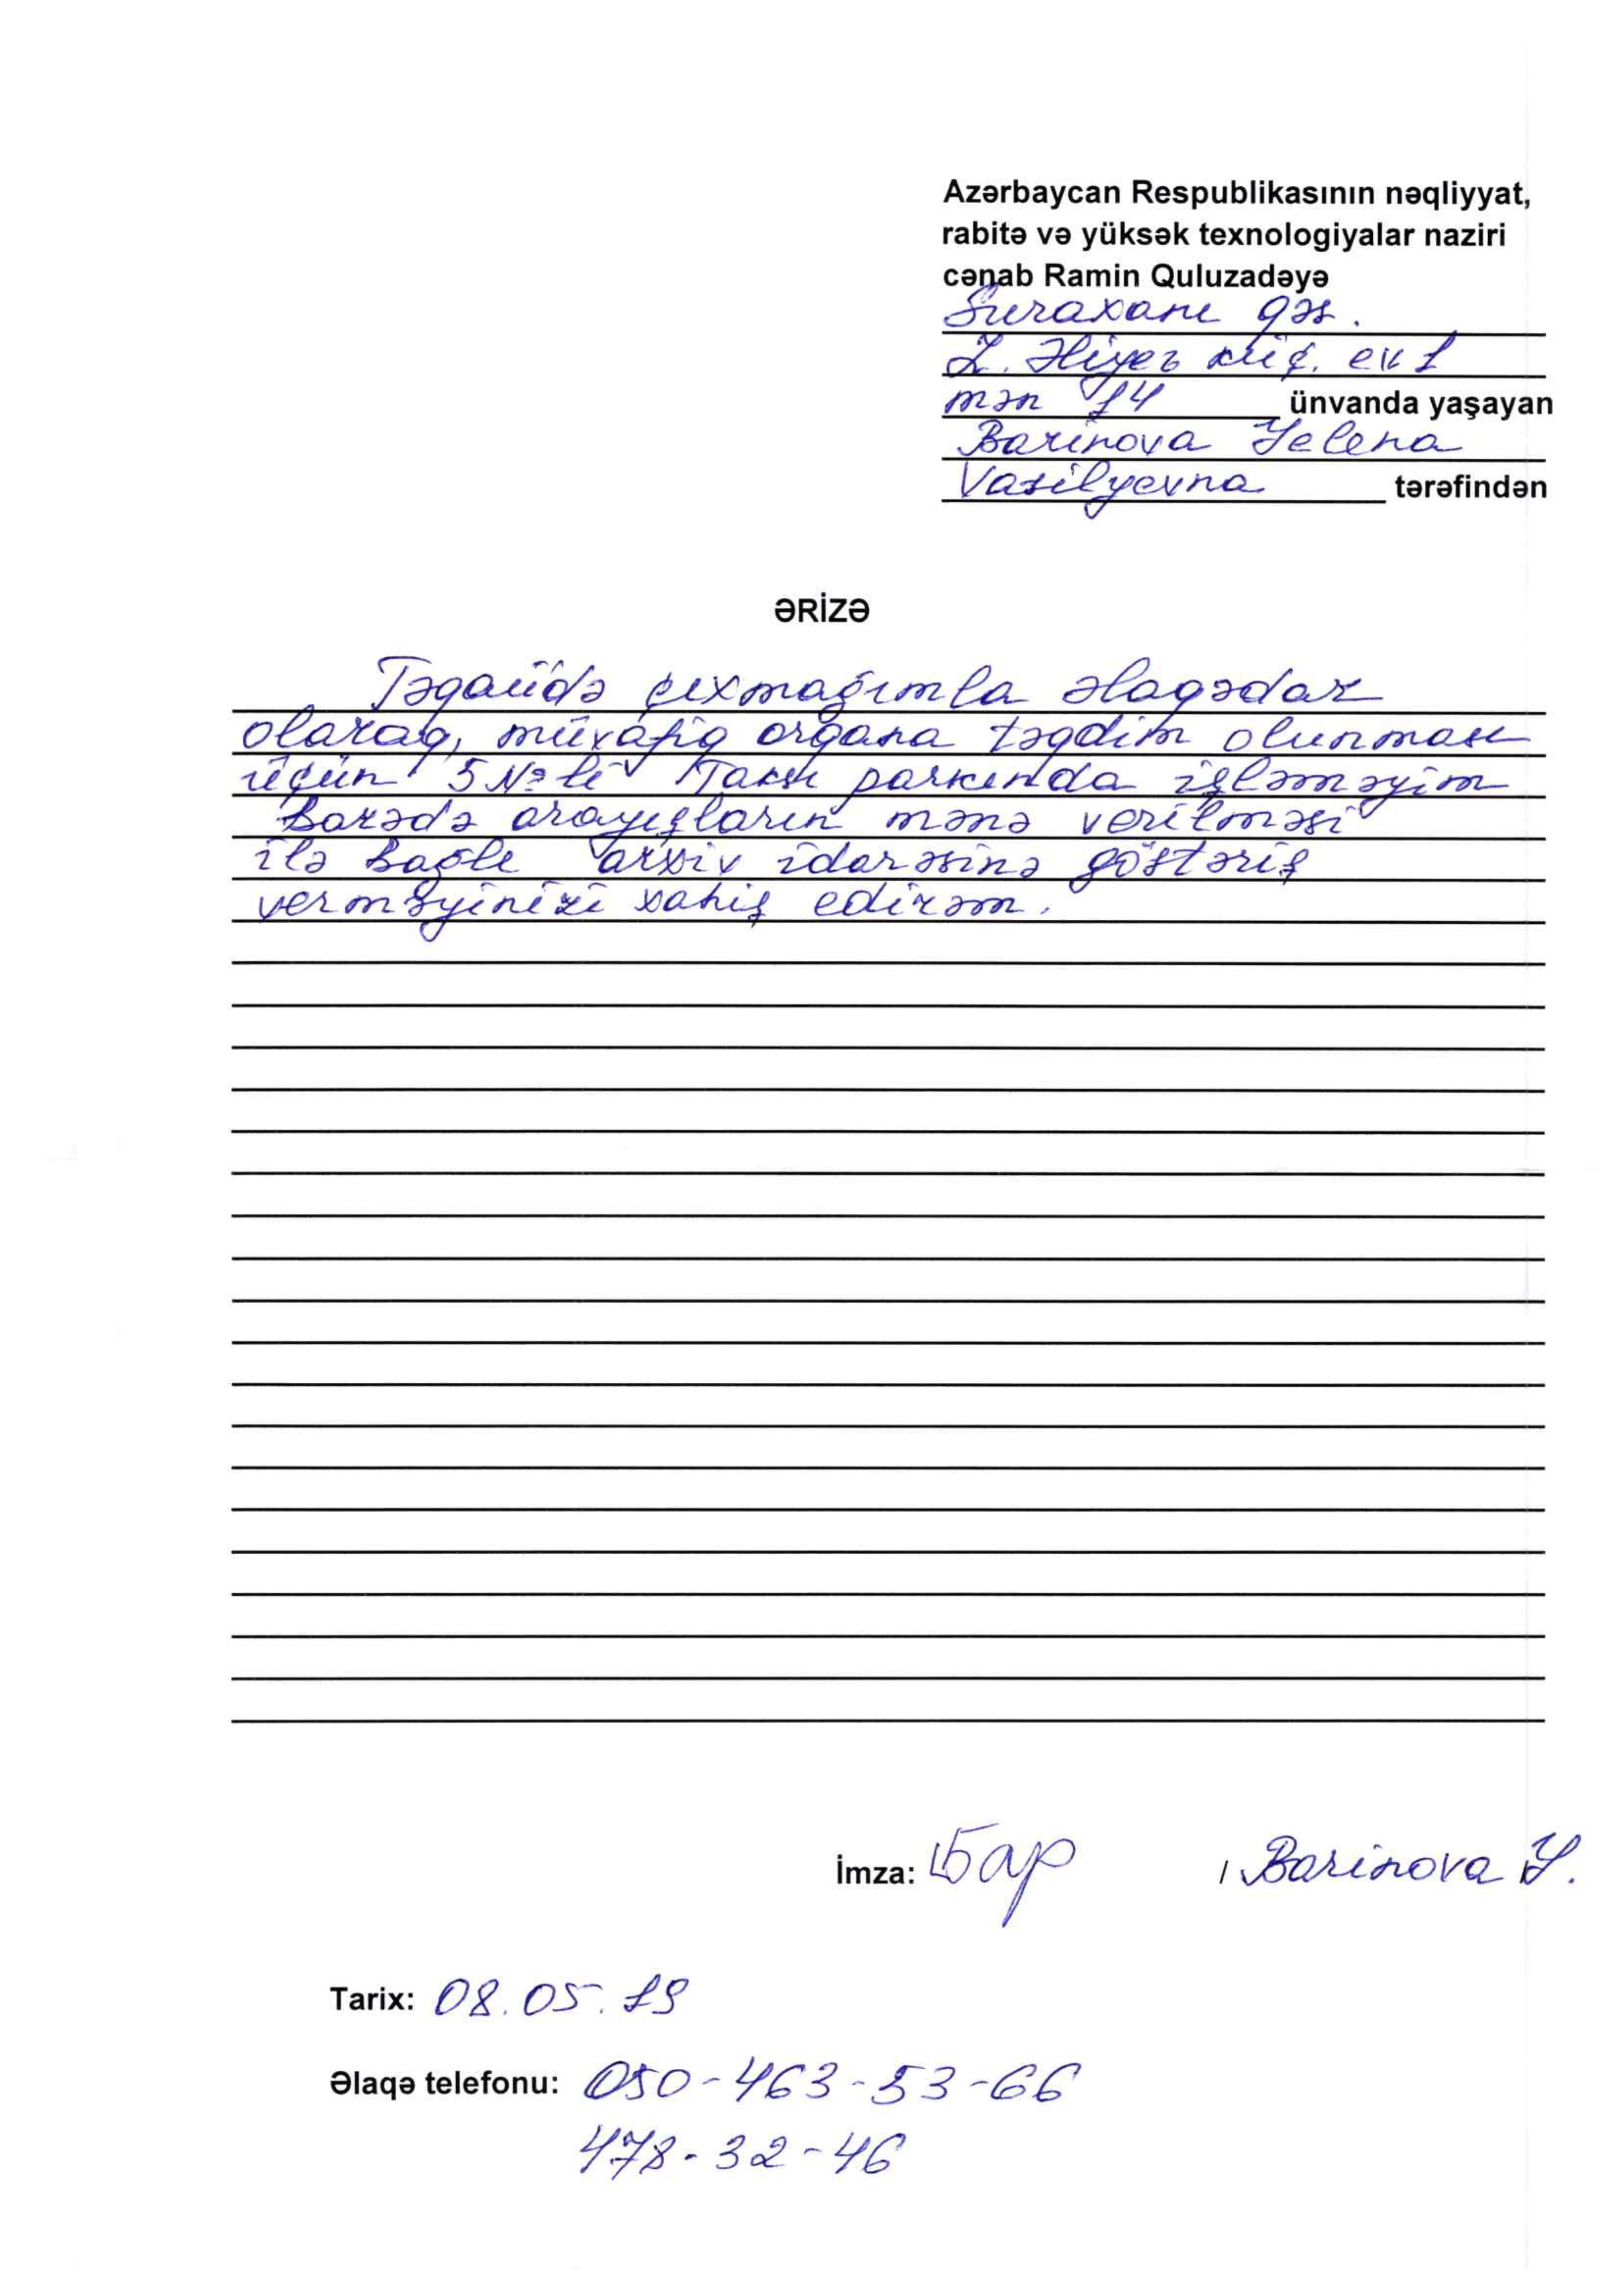 Azərbaycan Respublikasının nəqliyyat,
rabitə və yüksək texnologiyalar naziri
cənab Ramin Quluzadəyə
Suraxanı qəs.
Z. Əliyev küç. ev 1
mən 14 ünvanda yaşayan
Barinova Yelena
Vasilyevna tərəfindən
ƏRİZƏ
Təqaüdə çıxmağımla əlaqədar
olaraq, müvafiq orqana təqdim olunması
üçün 5 №li Taksi parkında işləməyim
barədə arayışların mənə verilməsi
ilə bağlı arxiv idarəsinə göstəriş
verməyinizi xahiş edirəm.
İmza: Бар / Barinova Y.
Tarix: 08.05.19
Əlaqə telefonu: 050-463-53-66
478-32-46